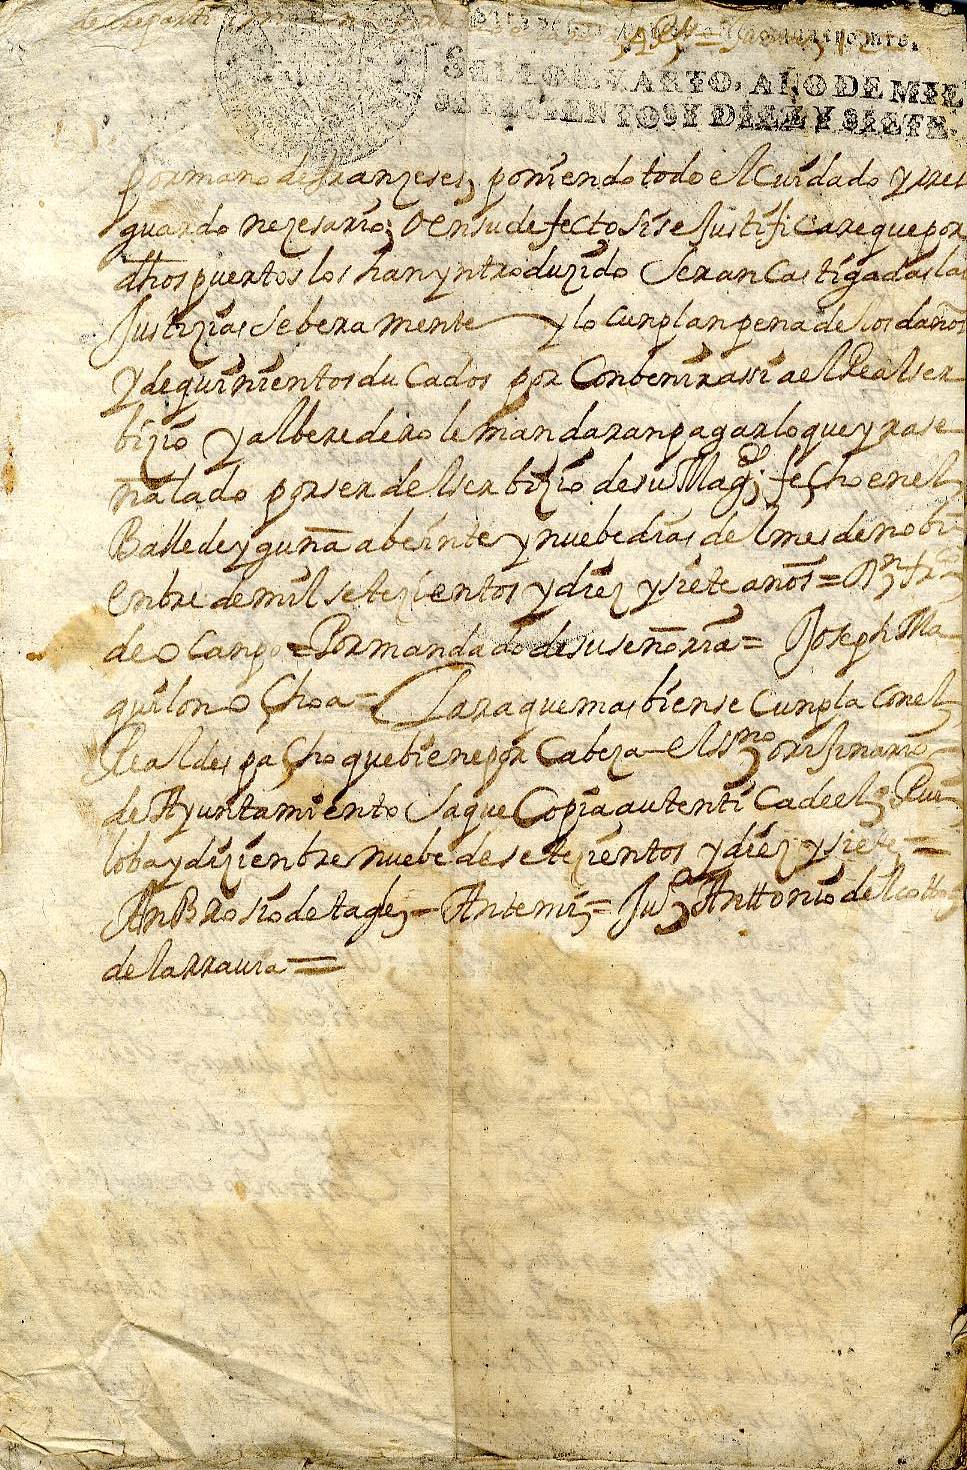 de reparti
SELLO QVARTO, AÑO DE MIL
SETECIENTOS Y DIEZ Y SIETE.
por mano de franzeses, poniendo todo el Cuidado y rres
guardo nezesario; O en su defecto si se Justificare que por
dhos puertos los han yntroduzido Seran Castigadas las
Justizias seberamente y lo cunplan pena de los daños
Y de quinientos ducados por Conbenir assi a el Real ser
bizio y al beredero le mandaran pagar lo que yra se
ñalado por ser del serbizio de su Magd; fecho en el
Balle de yguña a beinte y nuebe dias del mes de nobi
enbre de mil setezientos y diez y siete años = Dn frco
de Ocango = Por mandado de su señoria = Joseph Ma
quilon Ochoa = Para que mas bien se Cunpla Con el
Real despacho que biene por Cabeza el ssno orijinario
de Ayuntamiento Saque Copia autentica de el; Pue
loba y dizienbre nuebe de setezientos y diez y siete =
AnBrosio de tagle = Antemi = Juo Anttonio de el cotto
de la rraura =